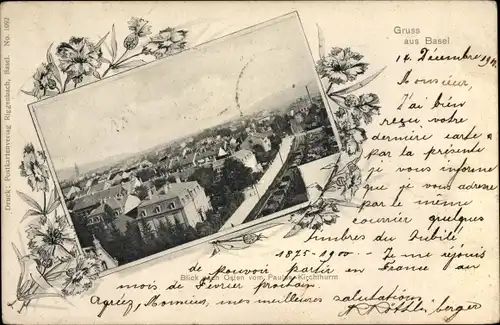 Gruss
aus Basel
14. Décembre 1900.
Monsieur,
J'ai bien
reçu votre
dernière carte.
par la présente
je vous informe
que je vous adresse
par le même
courrier quelques
timbres du Jubilé
1875-1900. — Je me réjouis
de pouvoir partir en France au
mois de Février prochain.
Agréez, Monsieur, mes meilleures salutations
Blick nach Osten vom Paulus-Kirchthurm
Druck: Postkartenverlag Riggenbach, Basel. No. 1082